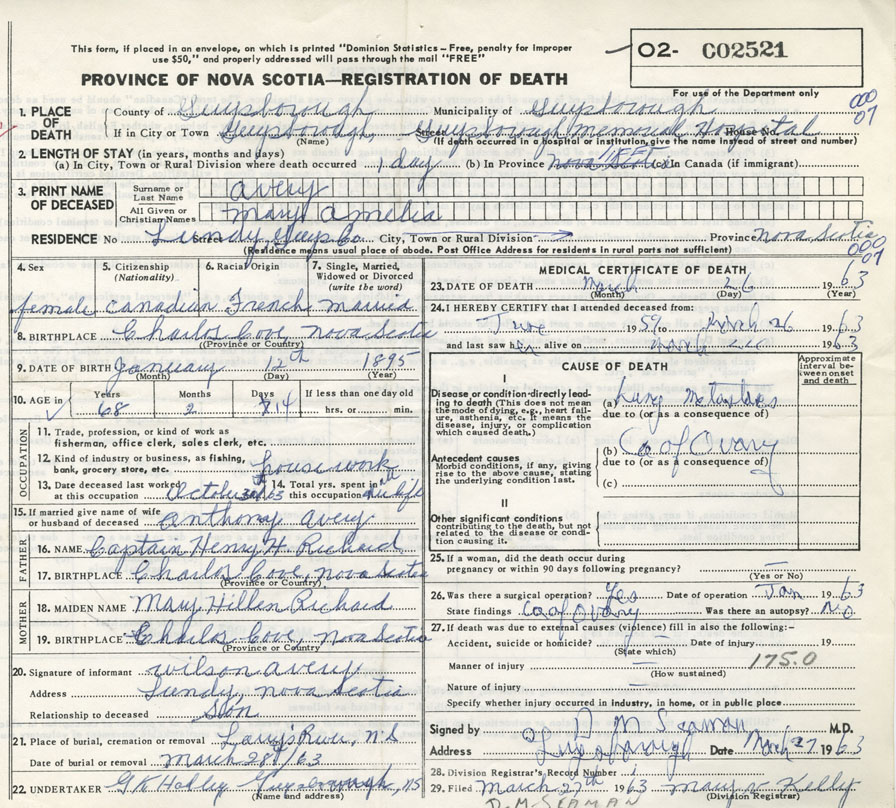 This form, if placed in an envelope, on which is printed "Dominion Statistics - Free, penalty for improper
use $50," and properly addressed will pass through the mail "FREE"
02- C02521
PROVINCE OF NOVA SCOTIA—REGISTRATION OF DEATH
For use of the Department only
1. PLACE OF DEATH County of Guysborough Municipality of Guysborough
000 07
If in City or Town Guysborough, Street Guysborough Memorial Hospital House No.
(Name) (If death occurred in a hospital or institution, give the name instead of street and number)
2. LENGTH OF STAY (in years, months and days)
(a) In City, Town or Rural Division where death occurred 1 day (b) In Province LIFE Nova Scotia (c) In Canada (if immigrant)
3. PRINT NAME OF DECEASED Surname or Last Name avery
All Given or Christian Names mary amelia
RESIDENCE No Lundy Street Guys Co. City, Town or Rural Division Province Nova Scotia
(Residence means usual place of abode. Post Office Address for residents in rural parts not sufficient)
000 07
4. Sex 5. Citizenship (Nationality) 6. Racial Origin 7. Single, Married, Widowed or Divorced (write the word)
female canadian French married
8. BIRTHPLACE Charlos Cove, nova Scotia
(Province or Country)
9. DATE OF BIRTH January 12th 1895
(Month) (Day) (Year)
10. AGE in Years Months Days If less than one day old
68 2 14 hrs. or min.
OCCUPATION
11. Trade, profession, or kind of work as fisherman, office clerk, sales clerk, etc.
12. Kind of industry or business, as fishing, bank, grocery store, etc. housework
13. Date deceased last worked at this occupation October 63 14. Total yrs. spent in this occupation all her life
15. If married give name of wife or husband of deceased anthony avery
FATHER
16. NAME Captain Henry H. Richard
17. BIRTHPLACE Charlos Cove, nova Scotia
(Province or Country)
MOTHER
18. MAIDEN NAME Mary Hillen Richard
19. BIRTHPLACE Charlos Cove, Nova Scotia
(Province or Country)
20. Signature of informant wilson avery
Address Lundy, nova Scotia
Relationship to deceased Son
21. Place of burial, cremation or removal Larry's River, n.S
Date of burial or removal march 28/63
22. UNDERTAKER G.K. Guysborough, NS
(Name and address)
MEDICAL CERTIFICATE OF DEATH
23. DATE OF DEATH March 26 1963
(Month) (Day) (Year)
24. I HEREBY CERTIFY that I attended deceased from:
June 1959 to March 26 1963
and last saw her alive on March 26 1963
CAUSE OF DEATH
Approximate interval between onset and death
I
Disease or condition directly leading to death (This does not mean the mode of dying, e.g., heart failure, asthenia, etc. It means the disease, injury, or complication which caused death.)
(a) Lung
due to (or as a consequence of)
Antecedent causes
Morbid conditions, if any, giving rise to the above cause, stating the underlying condition last.
(b) Ca of Ovary
due to (or as a consequence of)
(c)
II
Other significant conditions
contributing to the death, but not related to the disease or condition causing it.
25. If a woman, did the death occur during
pregnancy or within 90 days following pregnancy? —
(Yes or No)
26. Was there a surgical operation? Yes Date of operation Jan 1963
State findings Ca of Ovary Was there an autopsy? No
27. If death was due to external causes (violence) fill in also the following:-
Accident, suicide or homicide? — Date of injury 19
(State which)
Manner of injury — 175.0
(How sustained)
Nature of injury —
Specify whether injury occurred in industry, in home, or in public place
Signed by D M Seaman M.D.
Address Guysborough Date March 27 1963
28. Division Registrar's Record Number 1
29. Filed March 27th 1963 mary Kelly
(Division Registrar)
D.M. SEAMAN